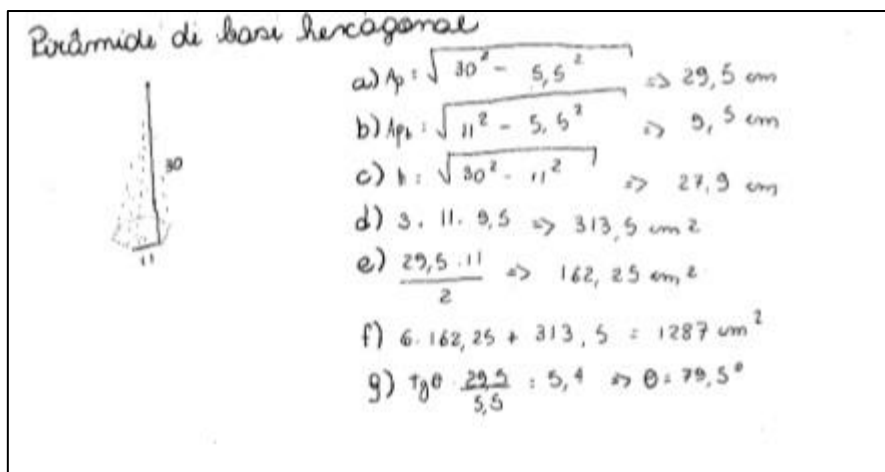 Pirâmide di basi hexagonal
30
11
a) Ap: √30² - 5,5² => 29,5 cm
b) Apb: √11² - 5,5² => 9,5 cm
c) h: √30² - 11² => 27,9 cm
d) 3. 11. 9,5 => 313,5 cm2
e) 29,5 . 11 / 2 => 162,25 cm2
f) 6. 162,25 + 313,5 = 1287 cm²
g) Tgθ . 29,5 / 5,5 : 5,4 => θ= 79,5°